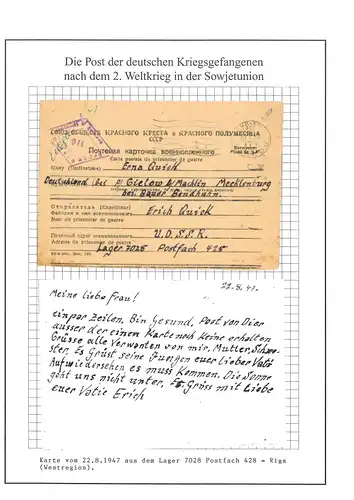 Die Post der deutschen Kriegsgefangenen
nach dem 2. Weltkrieg in der Sowjetunion
СОЮЗ ОБЩЕСТВ КРАСНОГО КРЕСТА и КРАСНОГО ПОЛУМЕСЯЦА
СССР
Почтовая карточка военнопленного
Carte postale du prisonnier de guerre
Кому (Destinataire) Erna Quick
Deutschland bei p/ Gielow b/ Machlin Mecklenburg
bei Bauer
Отправитель (Expéditeur)
Фамилия и имя военнопленного Erich Quick
Nom du prisonnier de guerre
Почтовый адрес военнопленного U.D.S.S.R.
Adresse du prisonnier de guerre
Lager 7028 Postfach 428
22.8.47.
Meine liebe Frau!
einpar Zeilen. Bin Gesund. Post von Dier
ausser der einen Karte noch keine erhalten
Grüsse alle Verwanten von mir. Mutter, Schwe-
ster. Es Grüst seine Jungen euer lieber Vati
Aufwiedersehen es muss kommen. Die Sonne
geht uns nicht unter. Es Grüss mit Liebe
euer Vatie Erich
Karte vom 22.8.1947 aus dem Lager 7028 Postfach 428 - Riga
(Westregion).